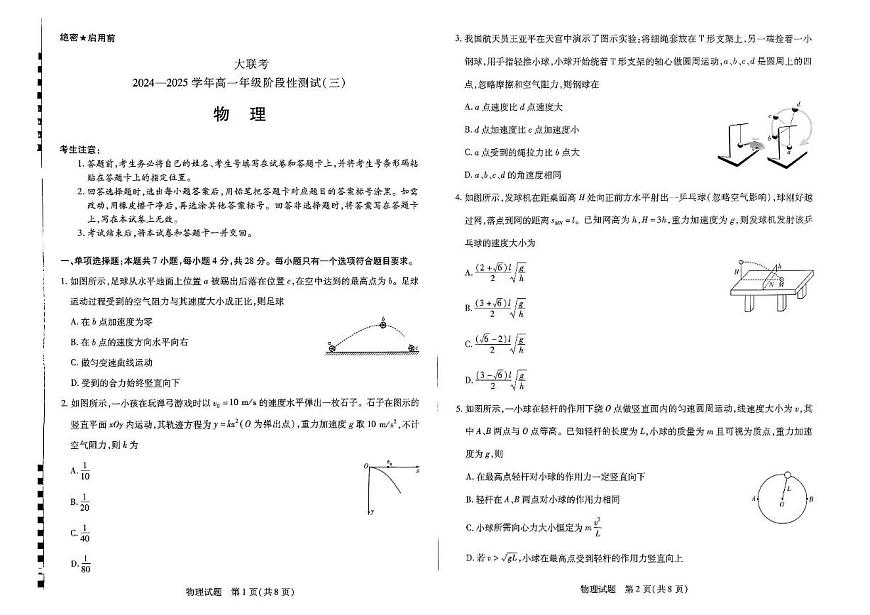 绝密★启用前
大联考
2024—2025学年高一年级阶段性测试(三)
物 理
考生注意:
1.答题前,考生务必将自己的姓名、考生号填写在试卷和答题卡上,并将考生号条形码粘
贴在答题卡上的指定位置。
2.回答选择题时,选出每小题答案后,用铅笔把答题卡对应题目的答案标号涂黑。如需
改动,用橡皮擦干净后,再选涂其他答案标号。回答非选择题时,将答案写在答题卡
上,写在本试卷上无效。
3.考试结束后,将本试卷和答题卡一并交回。
一、单项选择题:本题共7小题,每小题4分,共28分。每小题只有一个选项符合题目要求。
1.如图所示,足球从水平地面上位置a被踢出后落在位置c,在空中达到的最高点为b。足球
运动过程受到的空气阻力与其速度大小成正比,则足球
A.在b点加速度为零
B.在b点的速度方向水平向右
C.做匀变速曲线运动
D.受到的合力始终竖直向下
a
b
c
2.如图所示,一小孩在玩弹弓游戏时以v₀=10 m/s的速度水平弹出一枚石子。石子在图示的
竖直平面xOy内运动,其轨迹方程为y=kx²(O为弹出点),重力加速度g取10 m/s²,不计
空气阻力,则k为
A.1/10
B.1/20
C.1/40
D.1/80
O
v₀
x
y
物理试题 第1页(共8页)
3.我国航天员王亚平在天宫中演示了图示实验:将细绳套放在T形支架上,另一端拴着一小
钢球,用手指轻推小球,小球开始绕着T形支架的轴心做圆周运动,a、b、c、d是圆周上的四
点,忽略摩擦和空气阻力,则钢球在
A.a点速度比d点速度大
B.d点加速度比c点加速度小
C.a点受到的绳拉力比b点大
D.a、b、c、d的角速度相同
d
c
b
a
4.如图所示,发球机在距桌面高H处向正前方水平射出一乒乓球(忽略空气影响),球刚好越
过网,落点到网的距离s_MN=l。已知网高为h,H=3h,重力加速度为g,则发球机发射该乒
乓球的速度大小为
A.(2+√6)l/2 √(g/h)
B.(3+√6)l/2 √(g/h)
C.(√6-2)l/2 √(g/h)
D.(3-√6)l/2 √(g/h)
H
h
N
M
5.如图所示,一小球在轻杆的作用下绕O点做竖直面内的匀速圆周运动,线速度大小为v,其
中A、B两点与O点等高。已知轻杆的长度为L,小球的质量为m且可视为质点,重力加速
度为g,则
A.在最高点轻杆对小球的作用力一定竖直向下
B.轻杆在A、B两点对小球的作用力相同
C.小球所需向心力大小恒定为m v²/L
D.若v>√gL,小球在最高点受到轻杆的作用力竖直向上
A
L
O
B
物理试题 第2页(共8页)